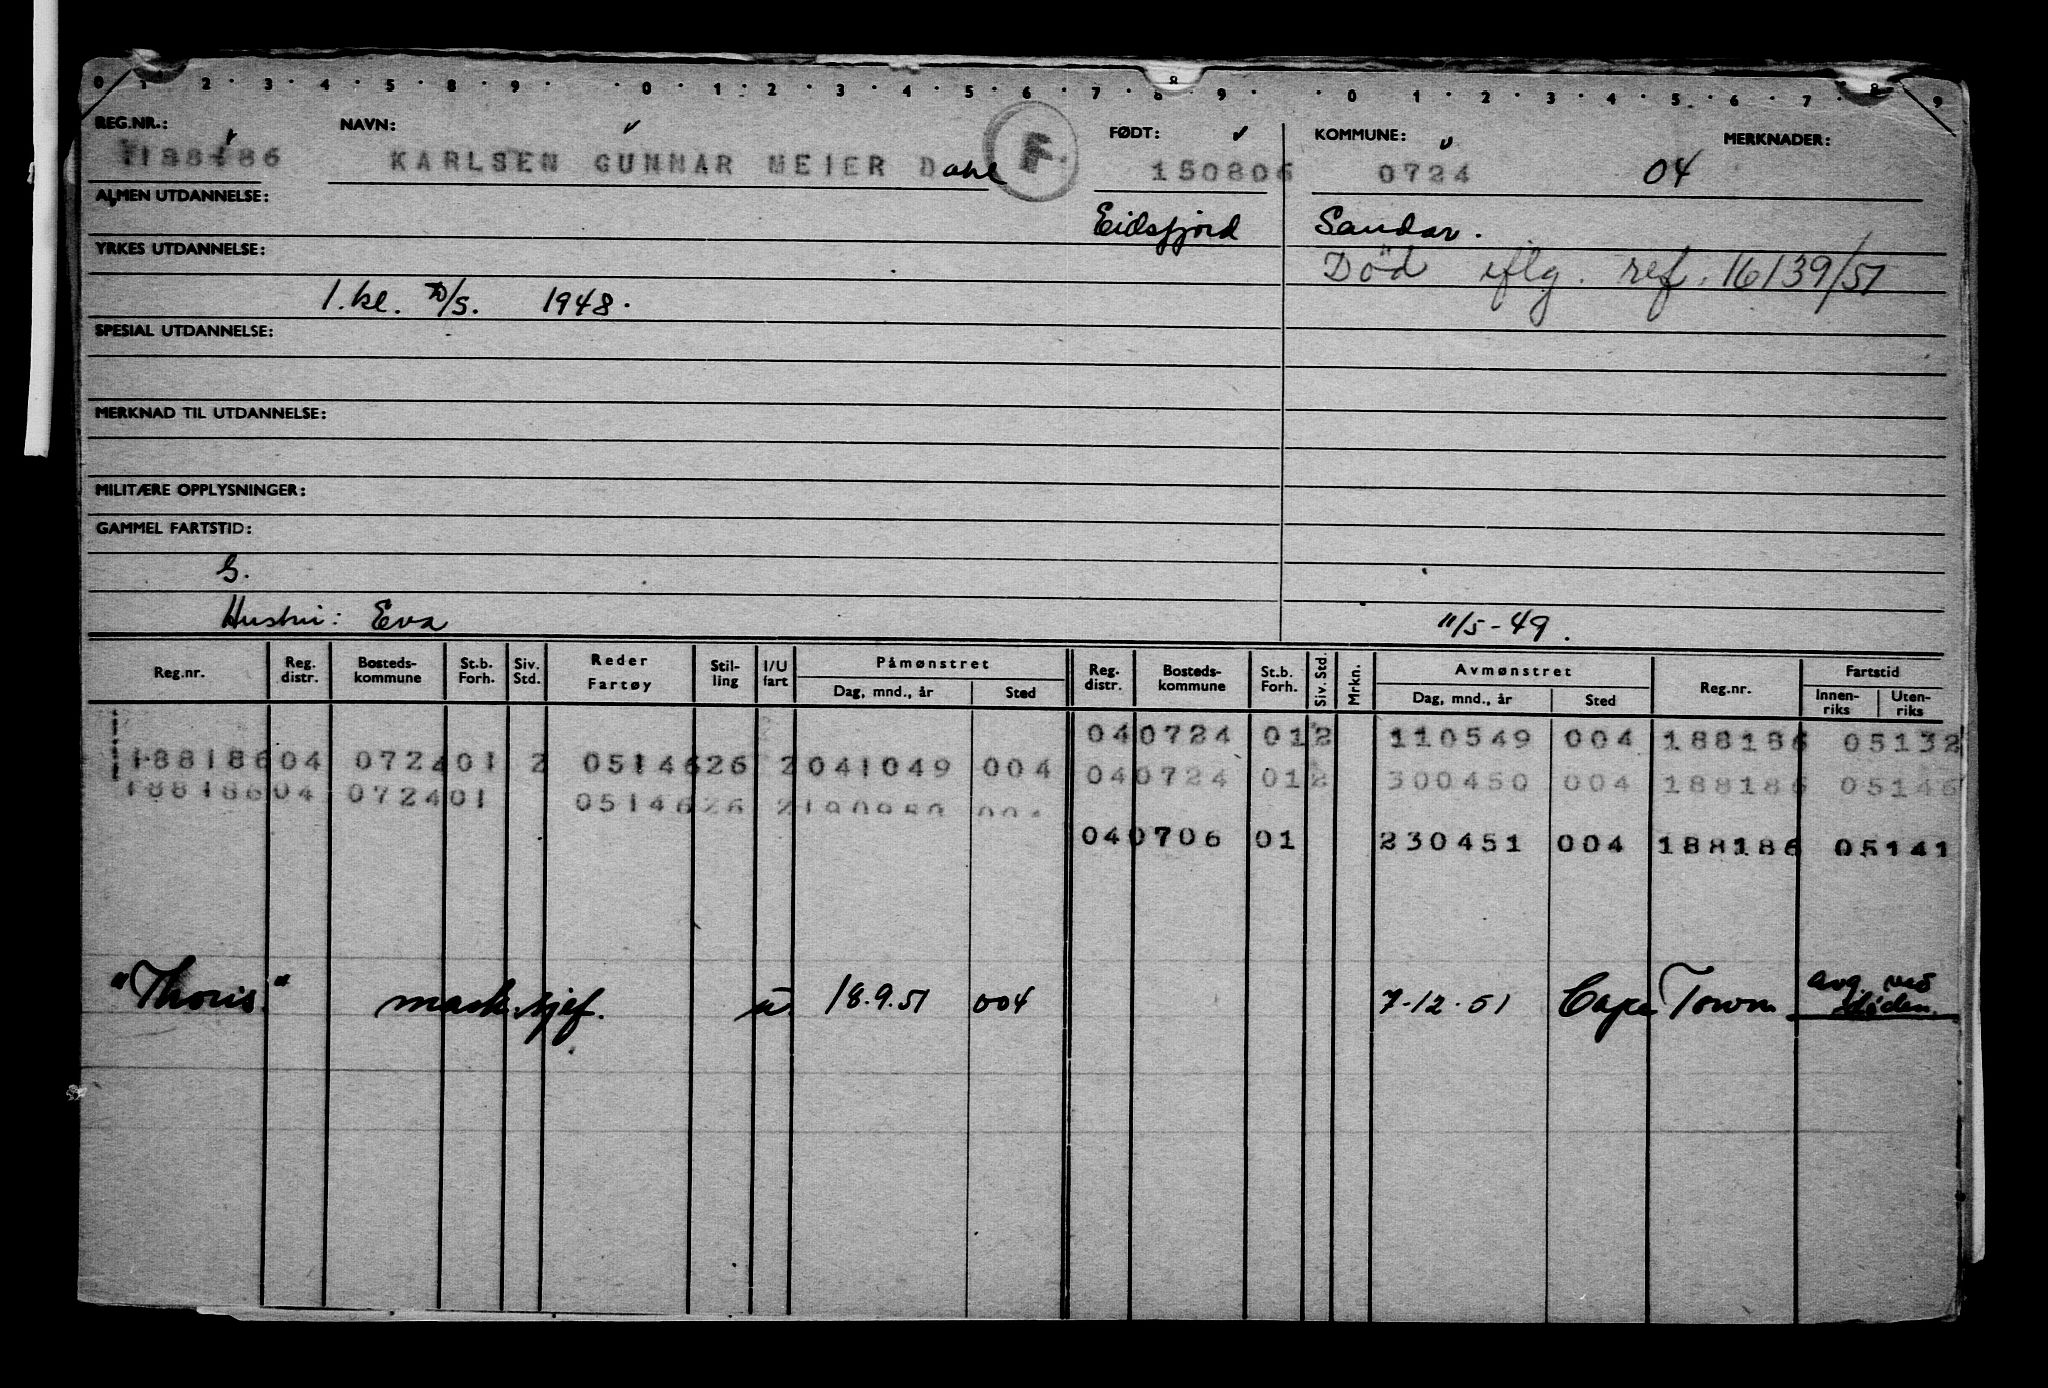 0 1 2 3 4 5 8 9 0 1 2 3 4 5 6 7 8 9 0 1 2 3 4 5 6 7 8 9
8
REG.NR.: NAVN: FØDT: KOMMUNE: MERKNADER:
188186 KARLSEN GUNNAR MEIER Dahl F 150806 0724 04
ALMEN UTDANNELSE:
Eidsfjord Sandar.
YRKES UTDANNELSE:
Død iflg. ref. 16139/51
1.kl. D/S. 1948.
SPESIAL UTDANNELSE:
MERKNAD TIL UTDANNELSE:
MILITÆRE OPPLYSNINGER:
GAMMEL FARTSTID:
G.
Hustru: Eva 11/5-49.
Reg.nr. Reg. distr. Bosteds-kommune St.b. Forh. Siv. Std. Reder Fartøy Stil-ling I/U fart Påmønstret Dag, mnd., år Sted Reg. distr. Bosteds-kommune St.b. Forh. Siv. Std. Mrkn. Avmønstret Dag, mnd., år Sted Reg.nr. Fartstid Innen-riks Uten-riks
04 0724 01 2 110549 004 188186 05132
188186 04 0724 01 2 05146 26 2 041049 004 04 0724 01 2 300450 004 188186 05146
188186 04 0724 01 05146 26 2 190950 004
04 0706 01 230451 004 188186 05141
"Thoris" mask.sjef. u 18.9.51 004 7-12-51 Cape Town avg. ved døden.